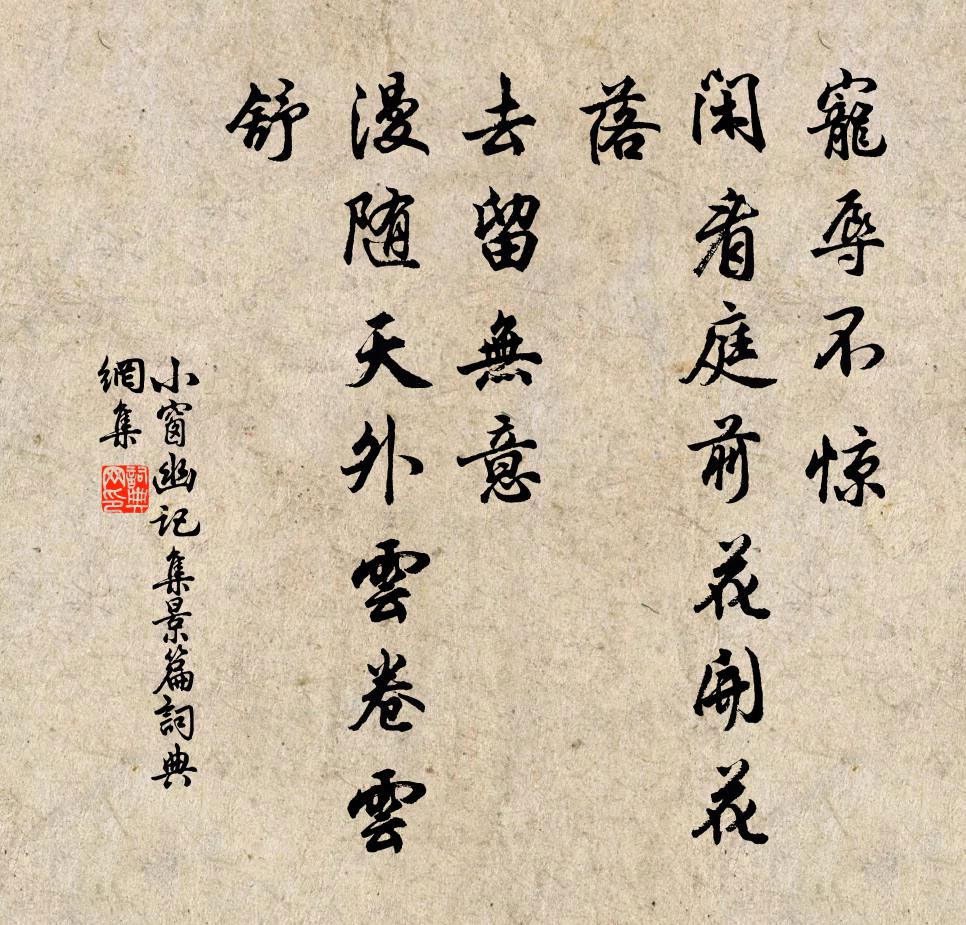 寵辱不惊
闲看庭前花開花
落
去留無意
漫随天外雲卷雲
舒
小窗幽記集景篇詞典
網集
詞典
网印